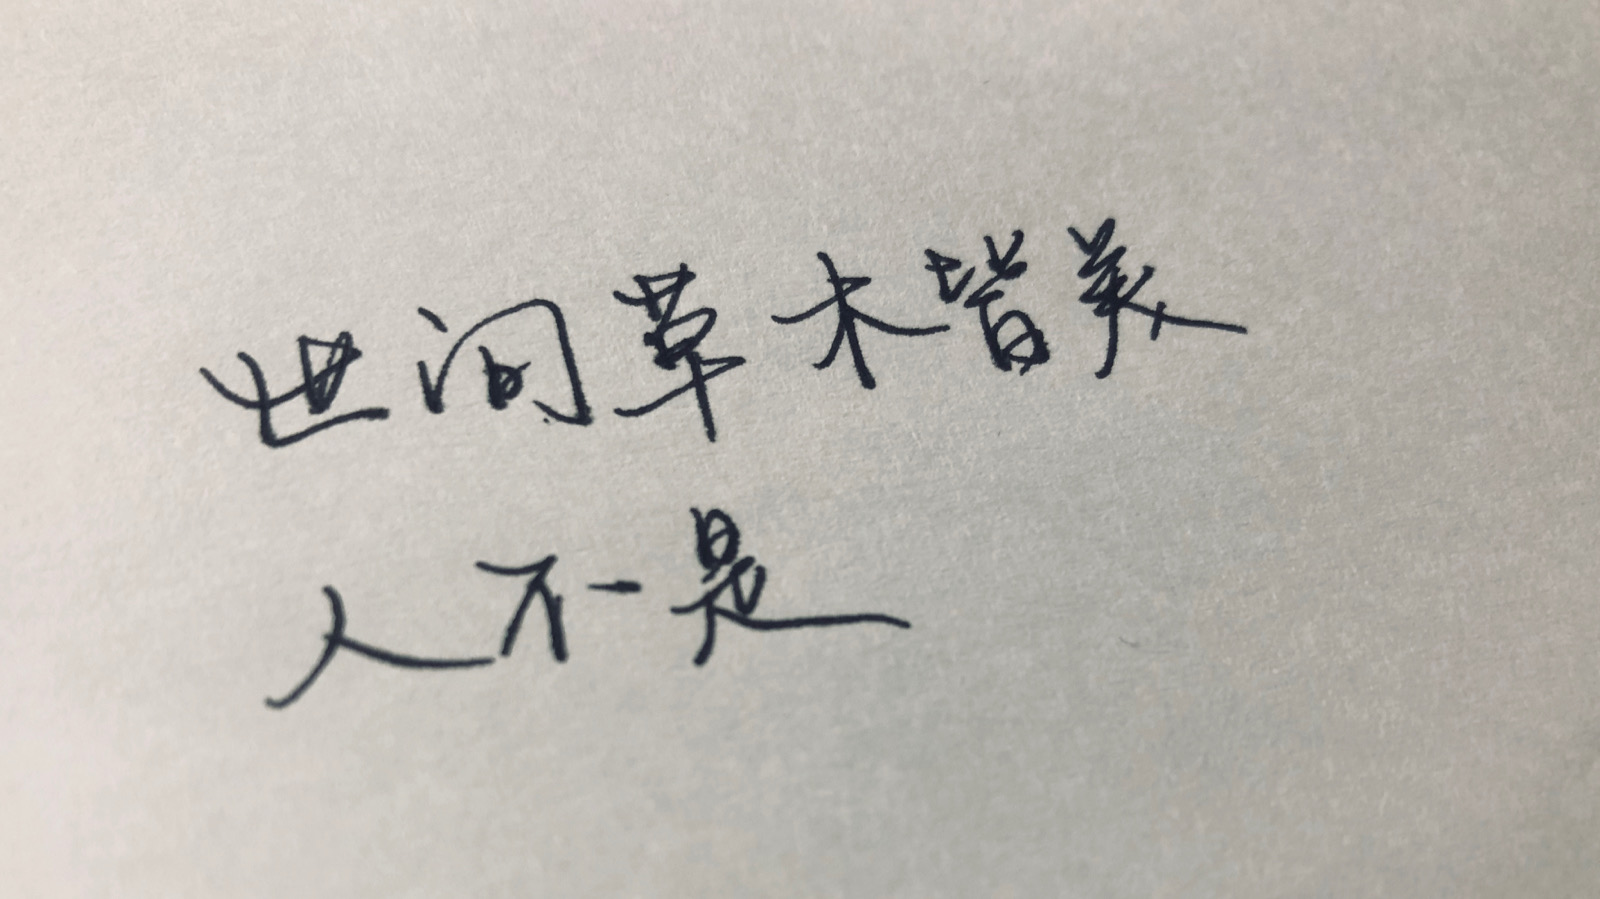 世间草木皆美
人不一是